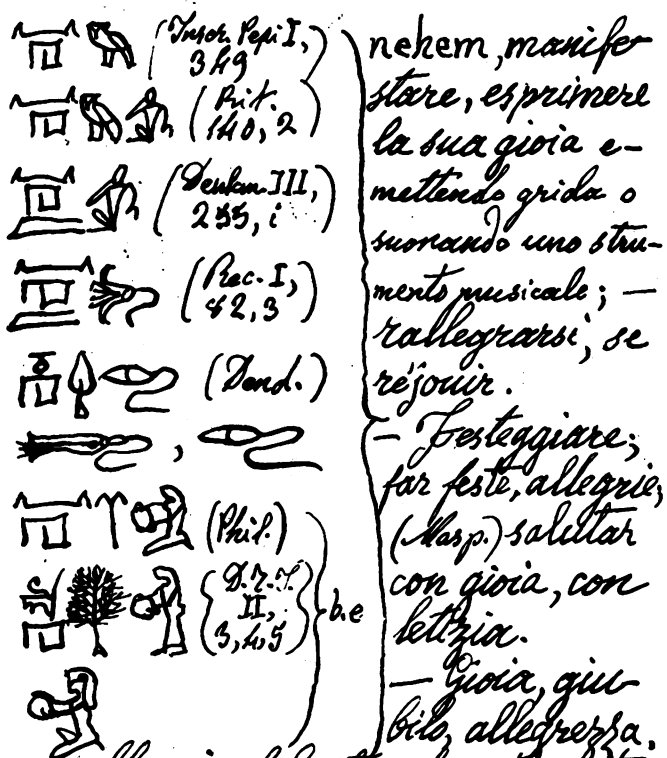 (Inscr. Pepi I,
349)
(Rit.
140, 2)
(Dendan. III,
255, i)
(Rec. I,
82, 3)
(Dend.)
,
(Phil.)
II,
3, 4, 5
b.e
neḥem, manife-
stare, esprimere
la sua gioia e-
mettendo grida o
suonando uno stru-
mento musicale; —
rallegrarsi, se
réjouir.
— Festeggiare;
far feste, allegrie;
(Masp.) salutar
con gioia, con
letizia.
— Gioia, giu-
bilo, allegrezza.